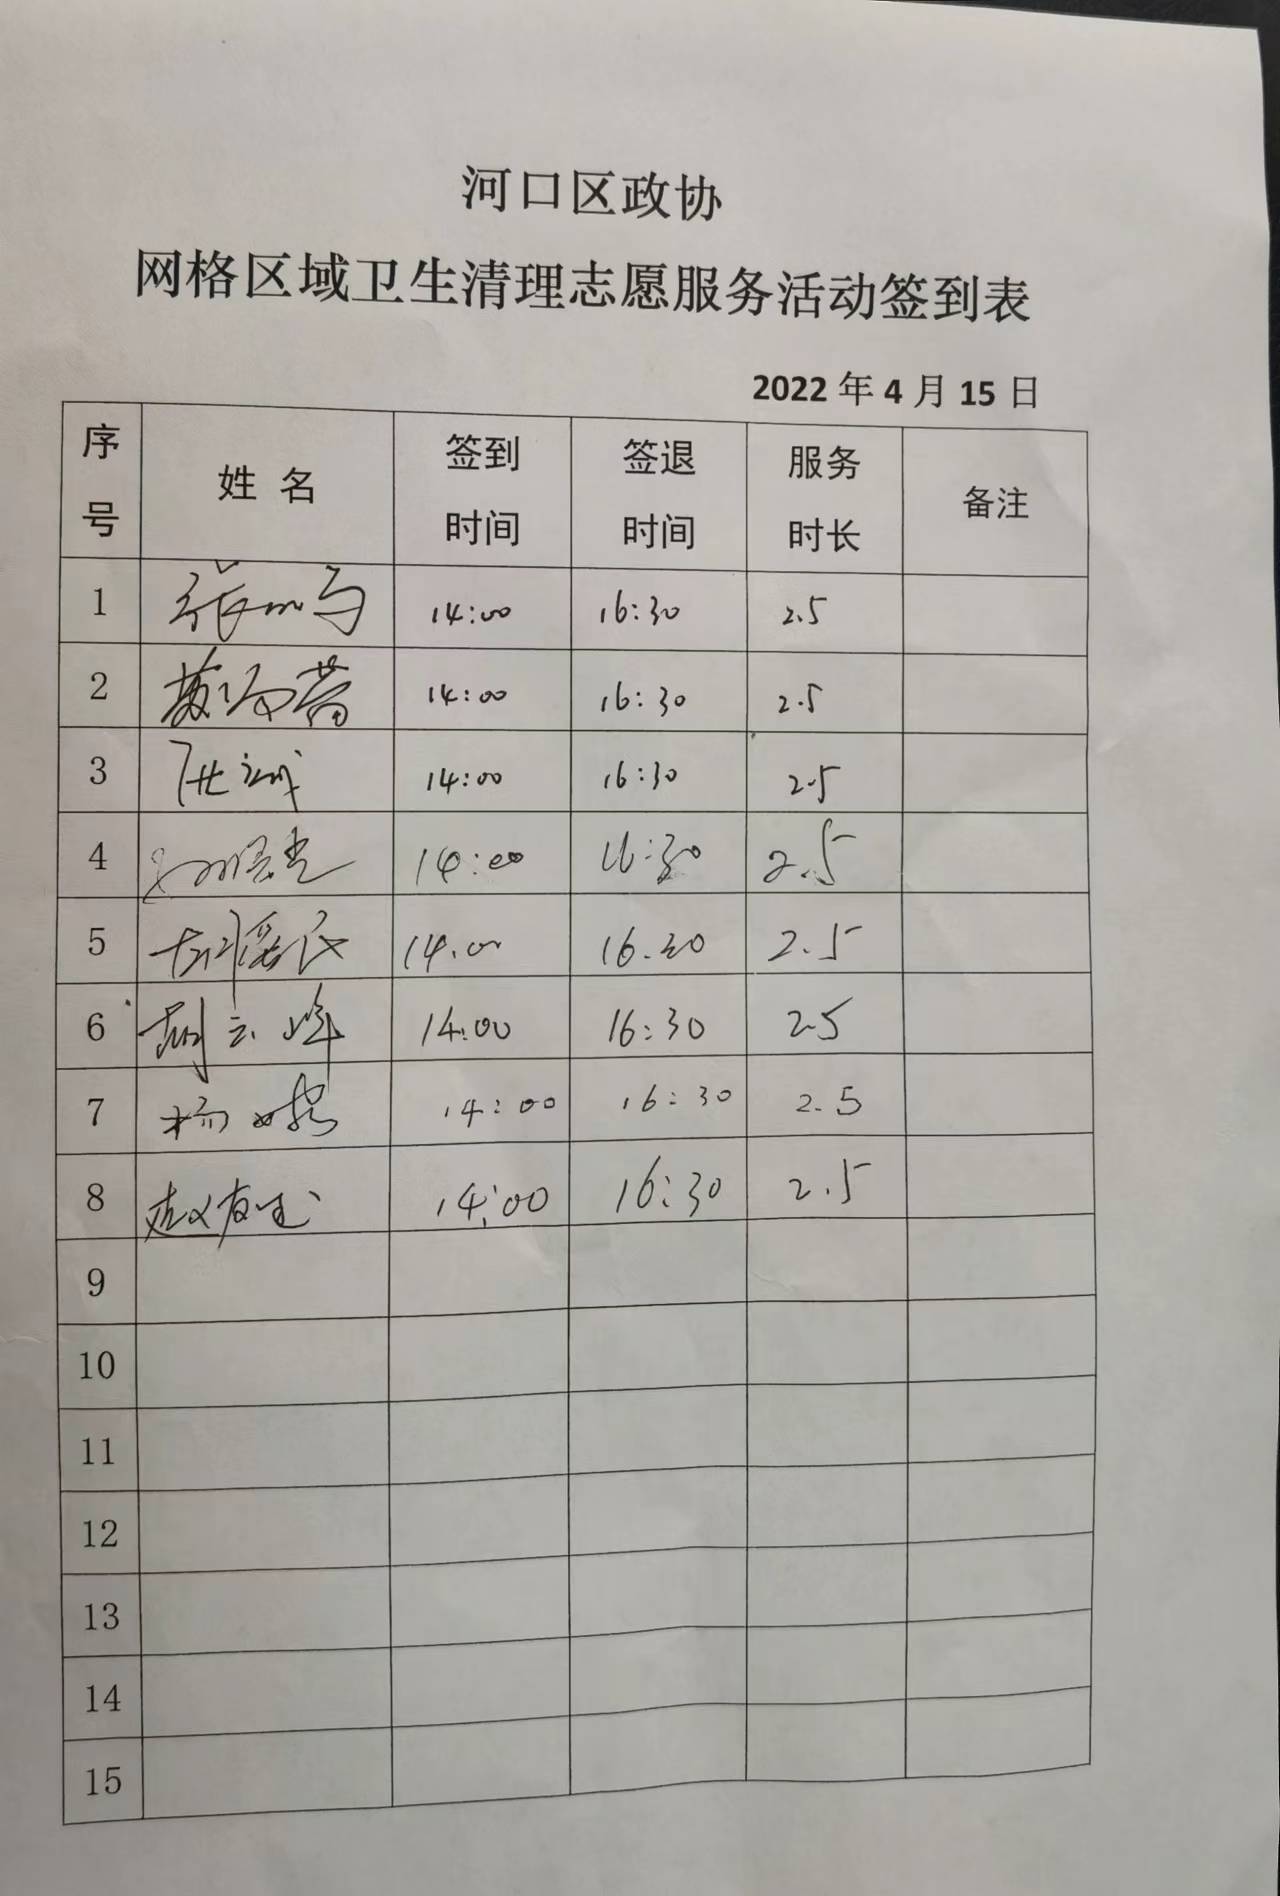 河口区政协
网格区域卫生清理志愿服务活动签到表
2022 年 4 月 15 日
序号 姓 名 签到时间 签退时间 服务时长 备注
1 14:00 16:30 2.5
2 14:00 16:30 2.5
3 14:00 16:30 2.5
4 14:00 16:30 2.5
5 14.00 2.5
6 胡云峰 14:00 16:30 2.5
7 杨 14:00 16:30 2.5
8 赵友 14:00 16:30 2.5
9
10
11
12
13
14
15